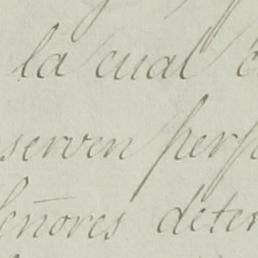 la cual
serven perp
señores deter